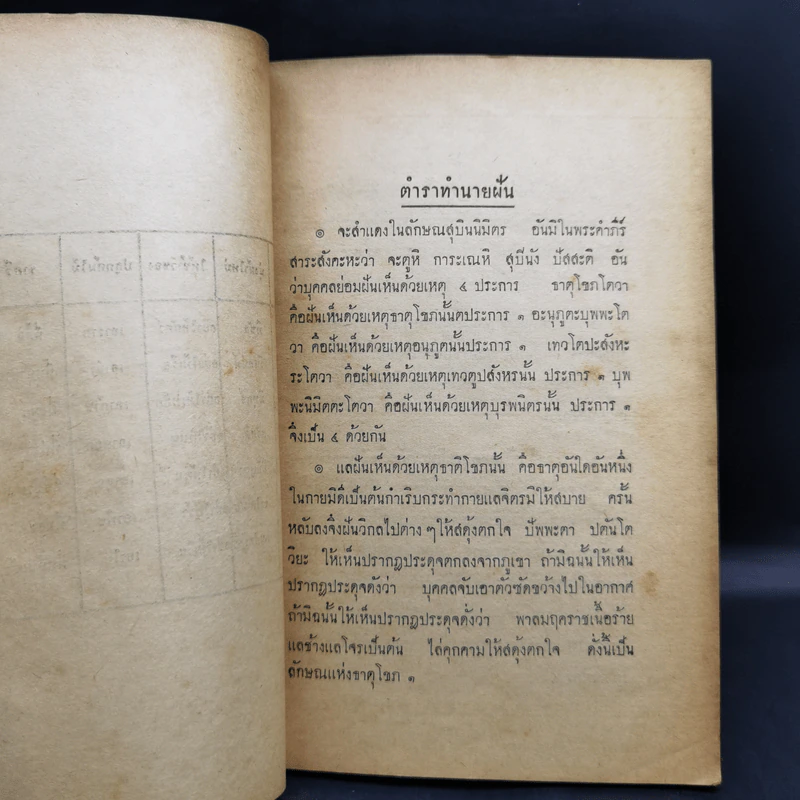 ตำราทำนายฝัน
๏ จะสำแดงในลักษณสุบินนิมิตร อันมีในพระคำภีร์
สาระสังคะหะว่า จะตูหิ การะเณหิ สุปีนัง ปัสสะติ อัน
ว่าบุคคลย่อมฝันเห็นด้วยเหตุ ๔ ประการ ธาตุโขภโตวา
คือฝันเห็นด้วยเหตุธาตุโขภนั้นตประการ ๑ อะนุภูตะบุพพะโต
วา คือฝันเห็นด้วยเหตุอนุภูตนั้นประการ ๑ เทวโตปะสังหะ
ระโตวา คือฝันเห็นด้วยเหตุเทวตูปสังหรนั้น ประการ ๑ บุพ
พะนิมิตตะโตวา คือฝันเห็นด้วยเหตุบุรพนิตรนั้น ประการ ๑
จึงเป็น ๔ ด้วยกัน
๏ แลฝันเห็นด้วยเหตุธาติโขภนั้น คือธาตุอันใดอันหนึ่ง
ในกายมีดีเป็นต้นกำเริบกระทำกายแลจิตรมิให้สบาย ครั้น
หลับลงจึ่งฝันวิกลไปต่าง ๆ ให้สดุ้งตกใจ ปัพพะตา ปตันโต
วิยะ ให้เห็นปรากฎประดุจตกลงจากภูเขา ถ้ามิฉนั้นให้เห็น
ปรากฎประดุจดังว่า บุคคลจับเอาตัวซัดขว้างไปในอากาศ
ถ้ามิฉนั้นให้เห็นปรากฎประดุจดั่งว่า พาลมฤคราชเนื้อร้าย
แลช้างแลโจรเป็นต้น ไล่คุกคามให้สดุ้งตกใจ ดั่งนี้เป็น
ลักษณแห่งธาตุโขภ ๑